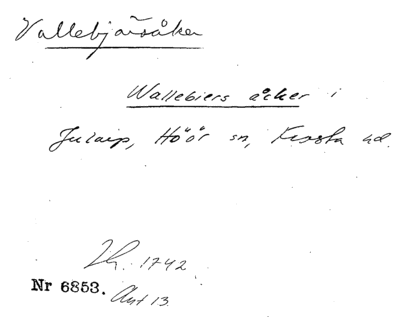 Vallebjärsåker
Wallebiers åcker i
Jularp, Höör sn, Frosta hd.
Lh. 1742.
Nr 6853.
Ant 13